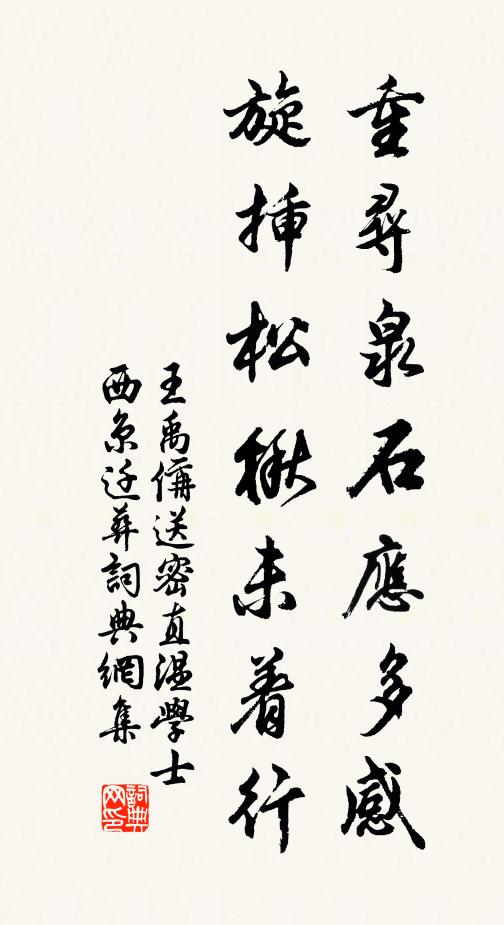 重尋泉石應多感
旋挿松楸未着行
王禹偁送密直温學士
西京迁葬詞典網集
詞典网印